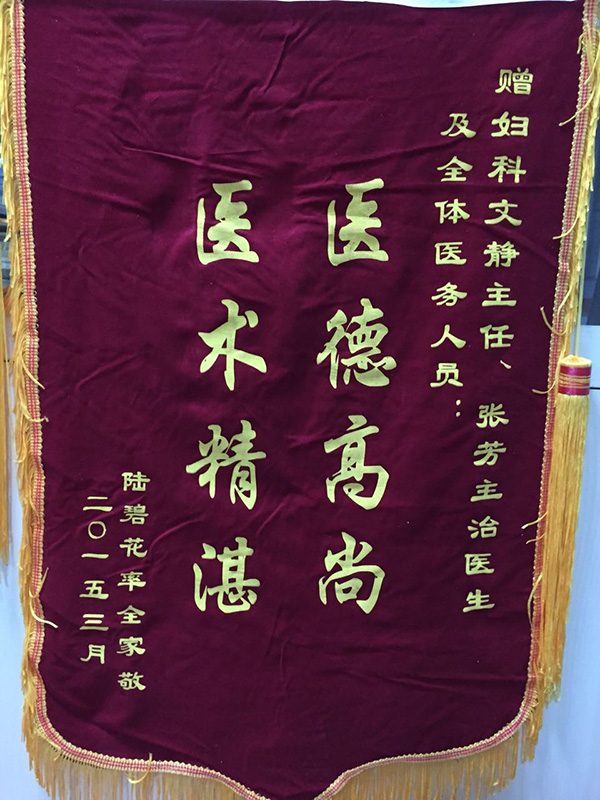 赠妇科文静主任、张芳主治医生
及全体医务人员：
医德高尚
医术精湛
陆碧花率全家敬
二〇一五三月